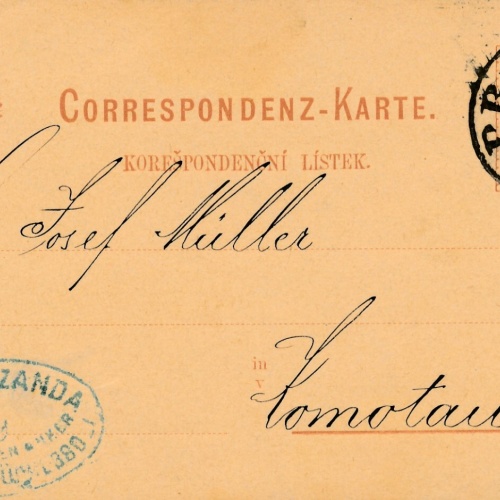 CORRESPONDENZ-KARTE.
KOREŠPONDENČNÍ LÍSTEK.
Josef Müller
in
v
Komotau
ZANDA